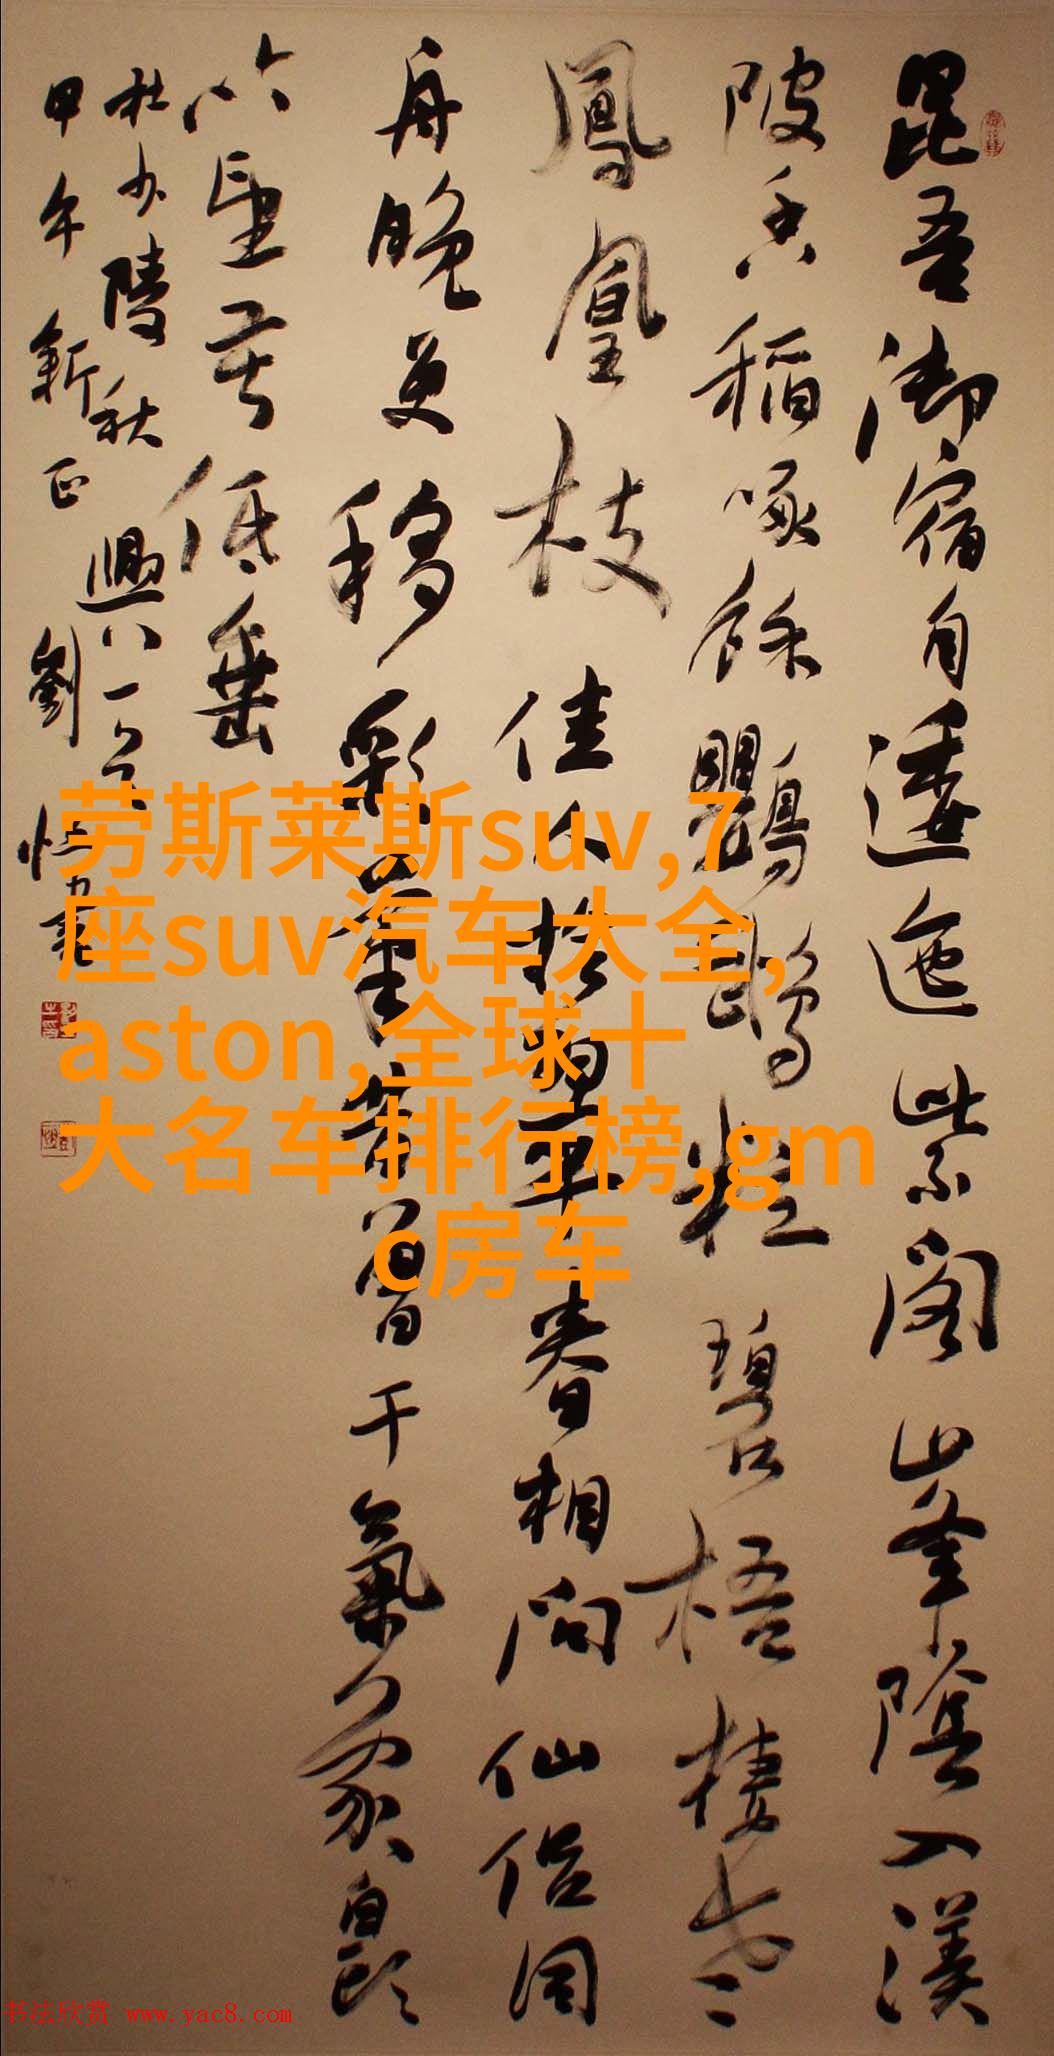 昆吾御宿自逶迤紫閣峯陰入渼
陂香稻啄餘鸚鵡粒碧梧棲老
鳳凰枝佳人拾翠春相问仙侣同
舟晚更移彩筆昔曾干氣象白頭
吟望苦低垂
杜少陵秋興八一
甲午新正劉
劳斯莱斯suv,7
座suv汽车大全,
aston,全球十
大名车排行榜,gm
c房车
书法欣赏 www.yac8.com